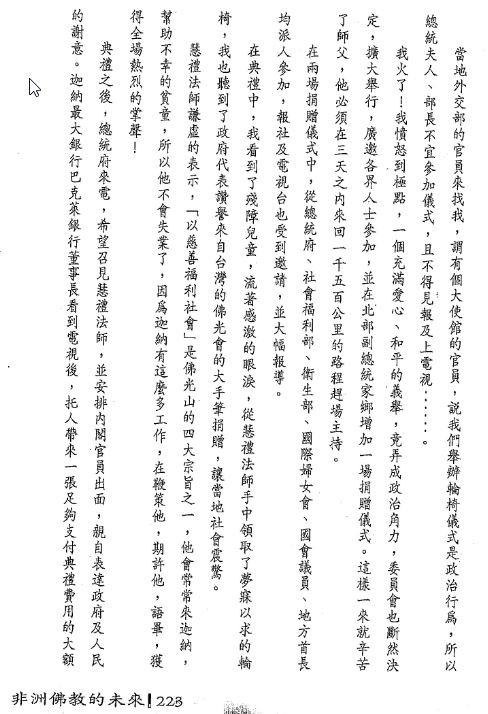 當地外交部的官員來找我，謂有個大使館的官員，說我們舉辦輪椅儀式是政治行爲，所以
總統夫人、部長不宜參加儀式，且不得見報及上電視......。
我火了！我憤怒到極點，一個充滿愛心、和平的義舉，竟弄成政治角力，委員會也斷然決
定，擴大舉行，廣邀各界人士參加，並在北部副總統家鄉增加一場捐贈儀式。這樣一來就辛苦
了師父，他必須在三天之內來回一千五百公里的路程趕場主持。
在兩場捐贈儀式中，從總統府、社會福利部、衛生部、國際婦女會、國會議員、地方首長
均派人參加，報社及電視台也受到邀請，並大幅報導。
在典禮中，我看到了殘障兒童，流著感激的眼淚，從慧禮法師手中領取了夢寐以求的輪
椅，我也聽到了政府代表讚譽來自台灣的佛光會的大手筆捐贈，讓當地社會震驚。
慧禮法師謙虛的表示，「以慈善福利社會」是佛光山的四大宗旨之一，他會常常來迦納，
幫助不幸的貧童，所以他不會失業了，因爲迦納有這麼多工作，在鞭策他，期許他，語畢，獲
得全場熱烈的掌聲！
典禮之後，總統府來電，希望召見慧禮法師，並安排內閣官員出面，親自表達政府及人民
的謝意。迦納最大銀行巴克萊銀行董事長看到電視後，托人帶來一張足夠支付典禮費用的大額
非洲佛教的未來 223